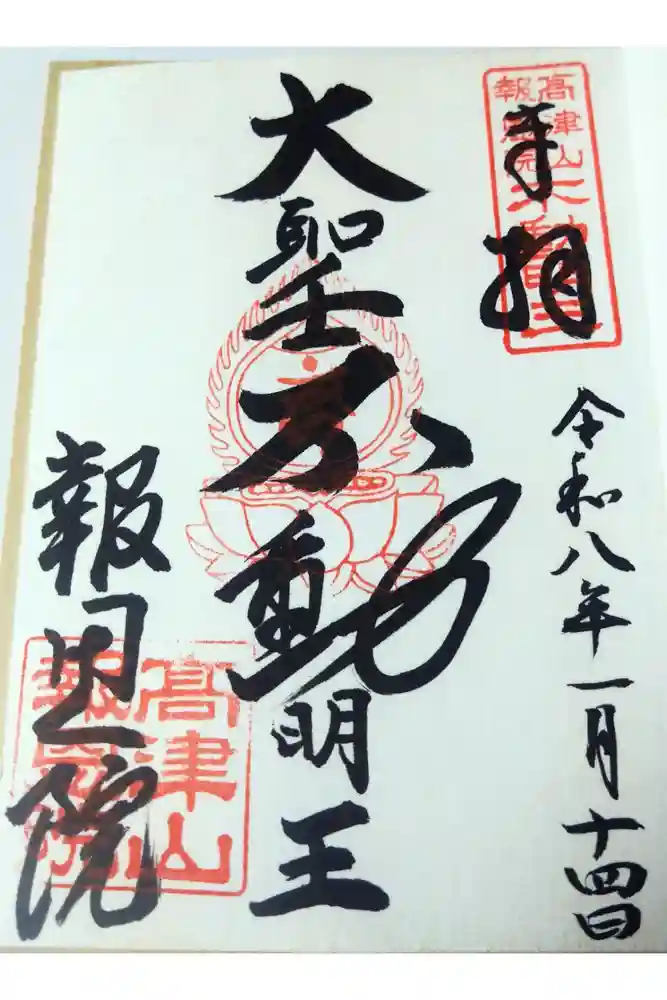 奉拝
高津山
報恩院
不動明王
令和八年一月十四日
大聖不動明王
報恩院
高津山
報恩院